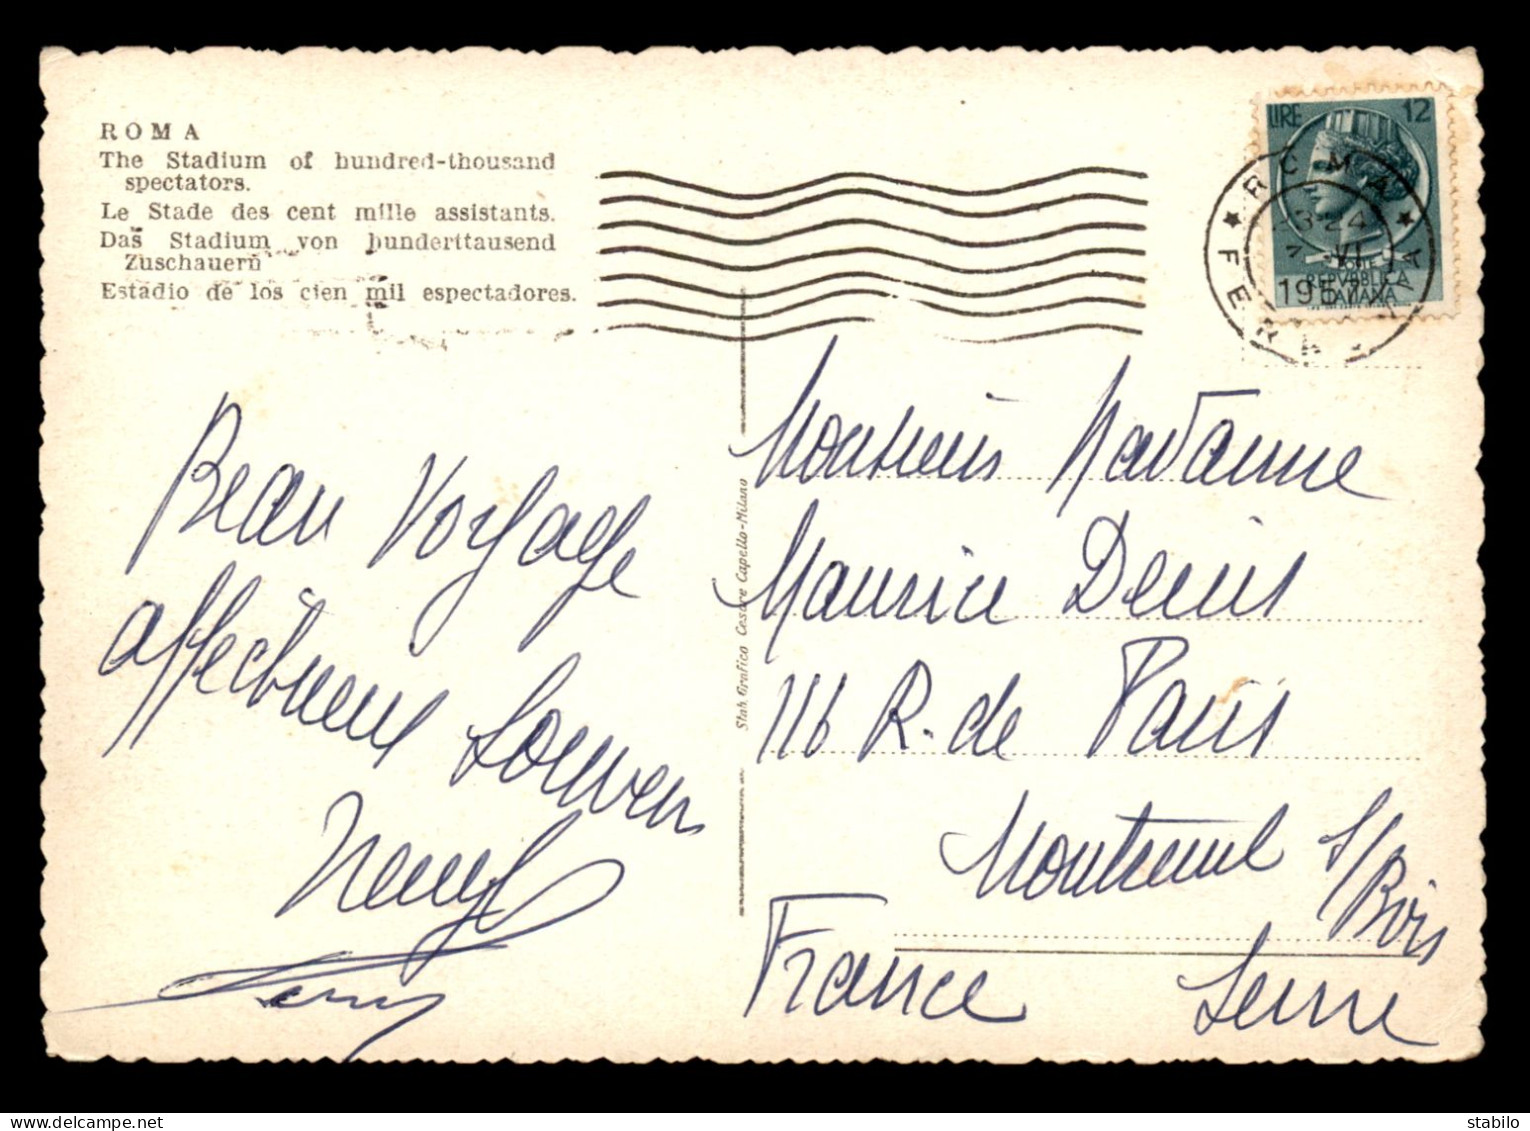 ROMA
The Stadium of hundred-thousand
spectators.
Le Stade des cent mille assistants.
Das Stadium von hunderttausend
Zuschauern
Estadio de los cien mil espectadores.
LIRE 12
ROMA
23-24
7 VI
1957
FERROVIA
REPVBBLICA
ITALIANA
Stab. Grafico Cesare Capello-Milano
Beau Voyage
affectueux Souvenir
Monsieur Madame
Maurice Denis
116 R. de Paris
Montreuil s/
Bois
France Seine
delcampe.net
stbolo